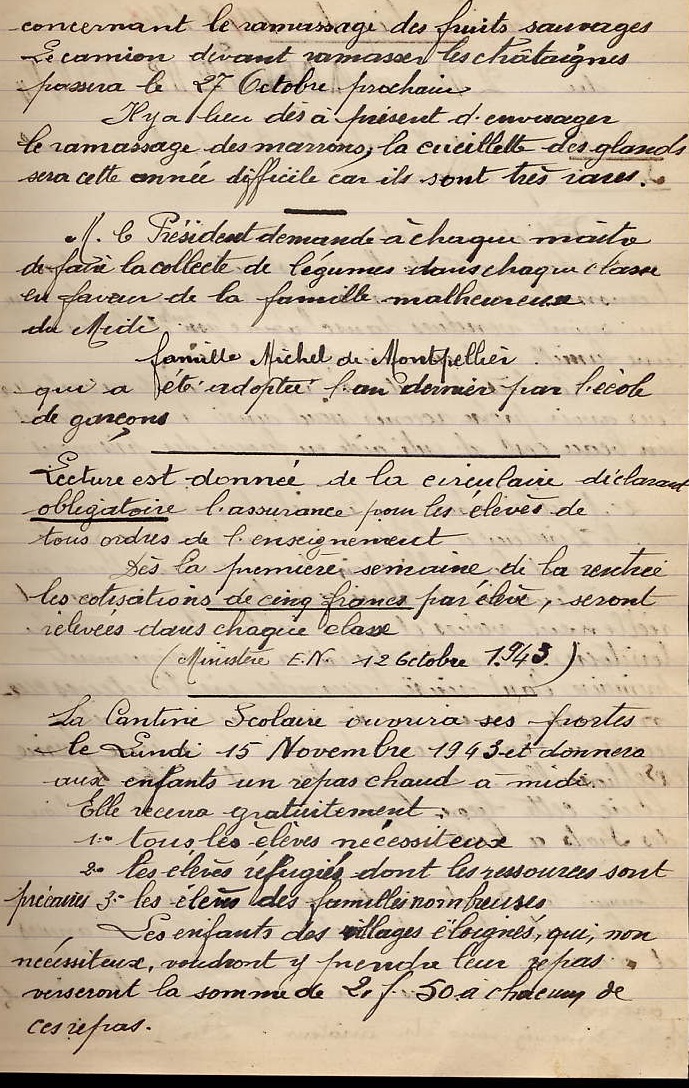 concernant le ramassage des fruits sauvages
Le camion devant ramasser les châtaignes
passera le 27 Octobre prochain
Il y a lieu dès à présent d'envisager
le ramassage des marrons, la cueillette des glands
sera cette année difficile car ils sont très rares.
M. le Président demande à chaque maître
de faire la collecte de légumes dans chaque classe
en faveur de la famille malheureuse
du Midi.
famille Michel de Montpellier.
qui a été adoptée l'an dernier par l'école
de garçons
Lecture est donnée de la circulaire déclarant
obligatoire l'assurance pour les élèves de
tous ordres de l'enseignement
Dès la première semaine de la rentrée
les cotisations de cinq francs par élève, seront
relevées dans chaque classe
(Ministère E.N. 12 Octobre 1943)
La Cantine Scolaire ouvrira ses portes
le Lundi 15 Novembre 1943 et donnera
aux enfants un repas chaud à midi.
Elle recevra gratuitement.
1:° tous les élèves nécessiteux
2° les élèves réfugiés dont les ressources sont
précaires 3° les élèves des familles nombreuses
Les enfants des villages éloignés, qui, non
nécessiteux, voudront y prendre leur repas
verseront la somme de 2 f 50 à chacun de
ces repas.